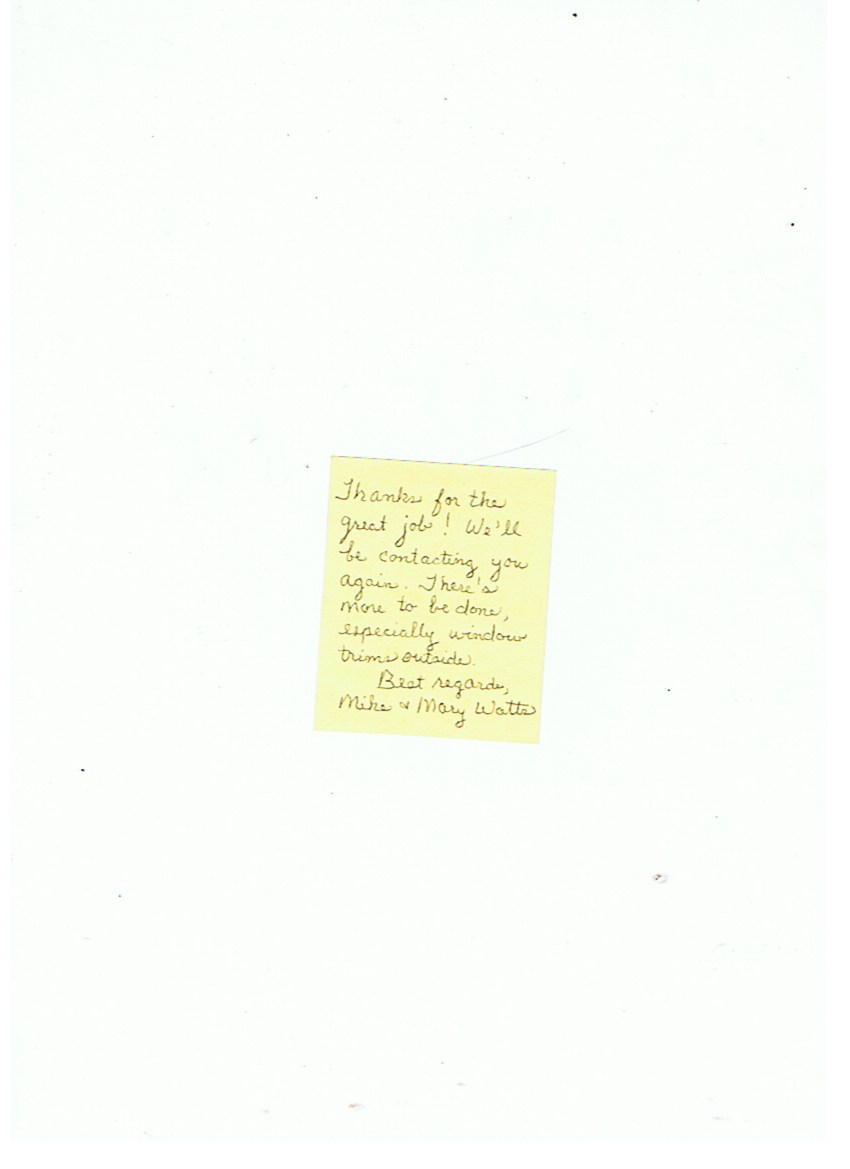 Thanks for the
great job! We'll
be contacting you
again. There's
more to be done,
especially window
trims outside.
Best regards,
Mike & Mary Watts